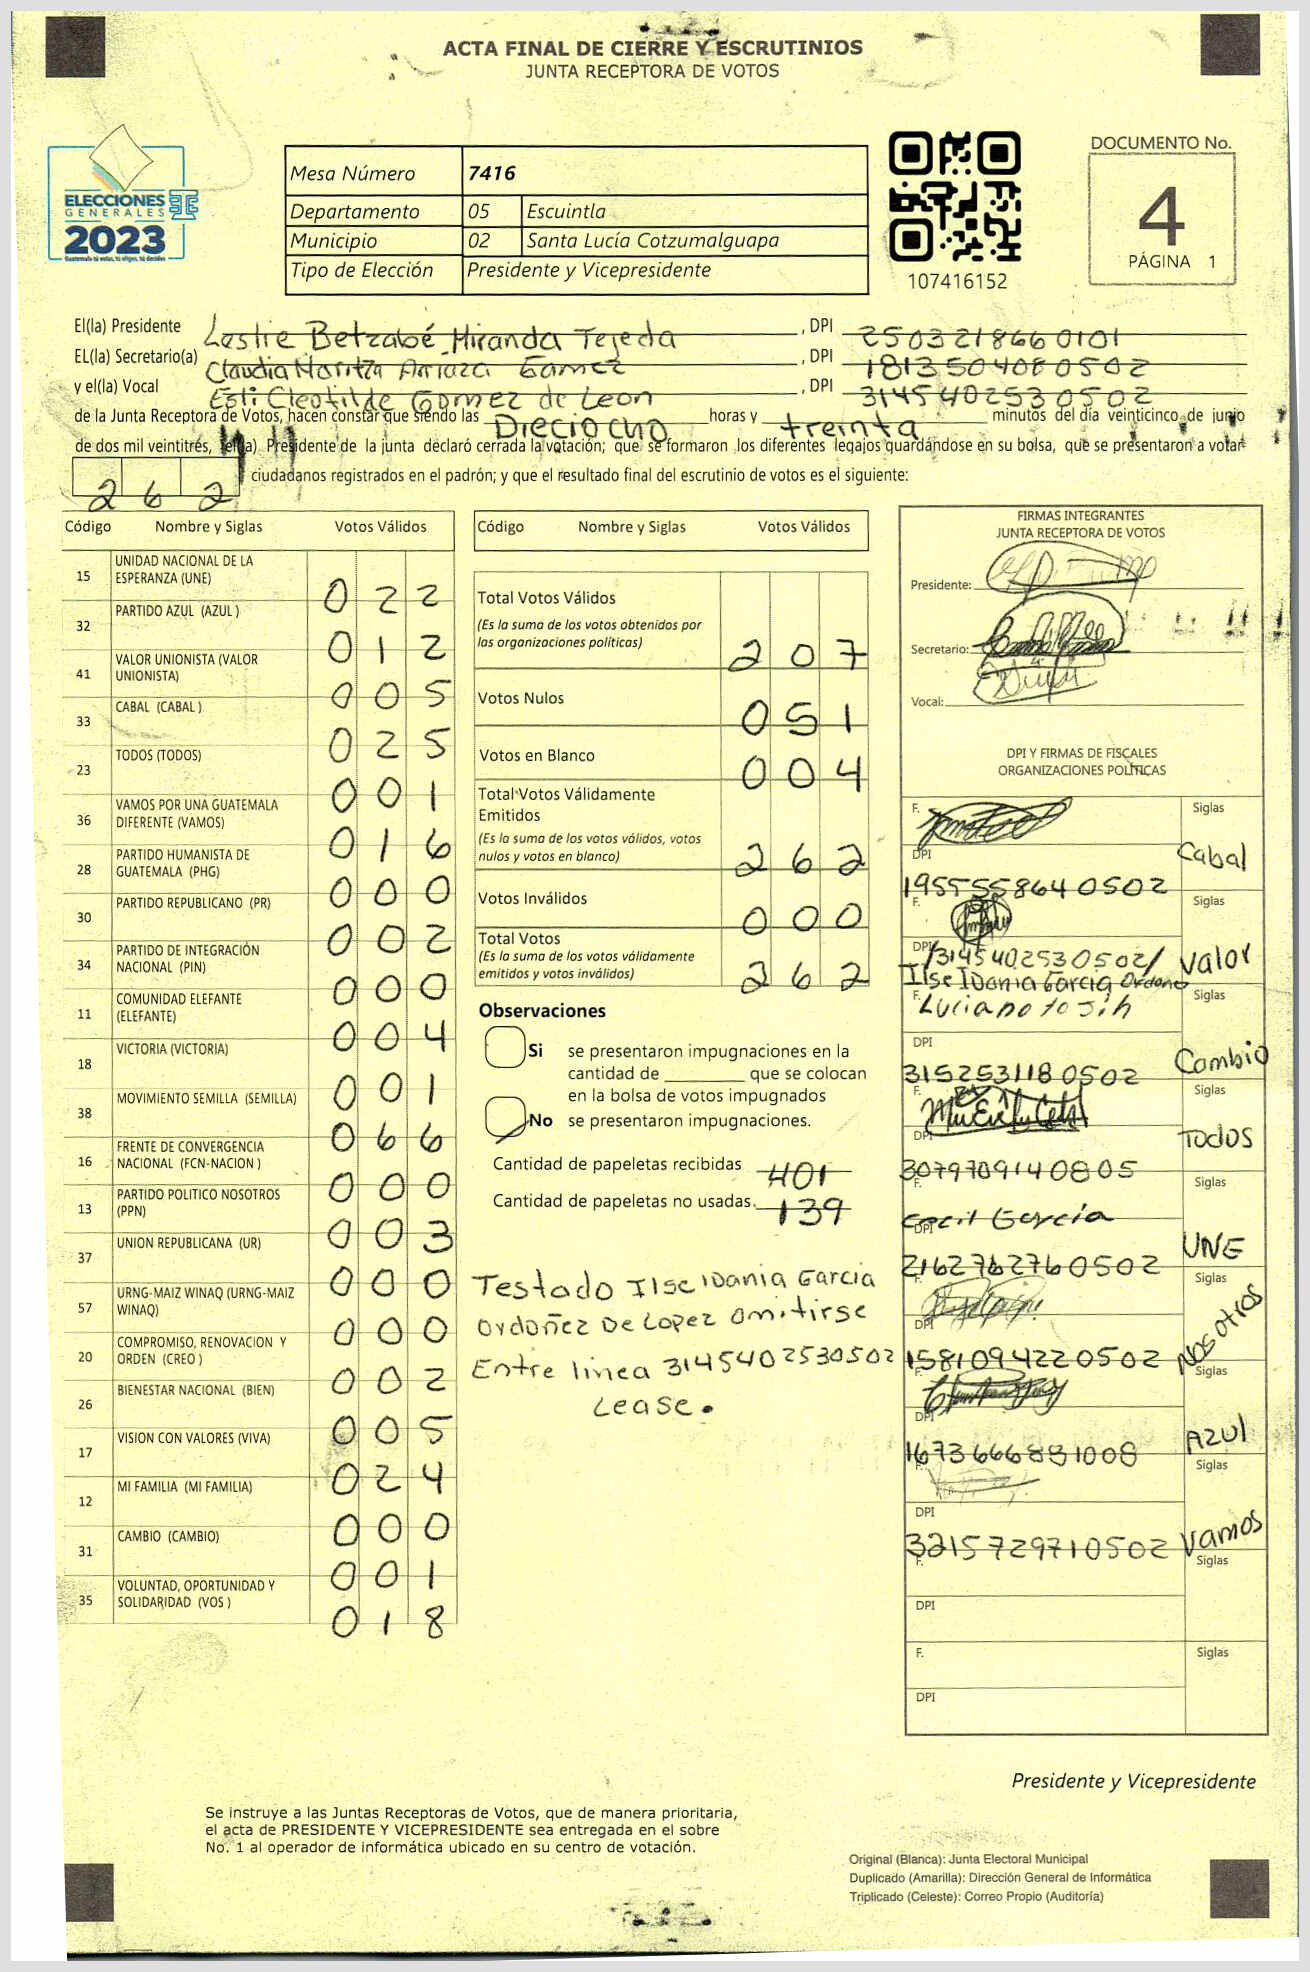 ACTA FINAL DE CIERRE Y ESCRUTINIOS
JUNTA RECEPTORA DE VOTOS
ELECCIONES
GENERALES
2023
Guatemala tú votas, tú eliges, tú decides
Mesa Número 7416
Departamento 05 Escuintla
Municipio 02 Santa Lucía Cotzumalguapa
Tipo de Elección Presidente y Vicepresidente
107416152
DOCUMENTO No.
4
PÁGINA 1
El(la) Presidente Leslie Betzabé Miranda Tejeda , DPI 2503218660101
EL(la) Secretario(a) Claudia Maritza Arriaza Gamez , DPI 1813504080502
y el(la) Vocal Esli Cleotilde Gomez de Leon , DPI 3145402530502
de la Junta Receptora de Votos, hacen constar que siendo las Dieciocho horas y treinta minutos del día veinticinco de junio
de dos mil veintitrés, el(la) Presidente de la junta declaró cerrada la votación; que se formaron los diferentes legajos guardándose en su bolsa, que se presentaron a votar
262 ciudadanos registrados en el padrón; y que el resultado final del escrutinio de votos es el siguiente:
Código Nombre y Siglas Votos Válidos
15 UNIDAD NACIONAL DE LA ESPERANZA (UNE) 022
32 PARTIDO AZUL (AZUL ) 012
41 VALOR UNIONISTA (VALOR UNIONISTA) 005
33 CABAL (CABAL ) 025
23 TODOS (TODOS) 001
36 VAMOS POR UNA GUATEMALA DIFERENTE (VAMOS) 016
28 PARTIDO HUMANISTA DE GUATEMALA (PHG) 000
30 PARTIDO REPUBLICANO (PR) 002
34 PARTIDO DE INTEGRACIÓN NACIONAL (PIN) 000
11 COMUNIDAD ELEFANTE (ELEFANTE) 004
18 VICTORIA (VICTORIA) 001
38 MOVIMIENTO SEMILLA (SEMILLA) 066
16 FRENTE DE CONVERGENCIA NACIONAL (FCN-NACION ) 000
13 PARTIDO POLITICO NOSOTROS (PPN) 003
37 UNION REPUBLICANA (UR) 000
57 URNG-MAIZ WINAQ (URNG-MAIZ WINAQ) 000
20 COMPROMISO, RENOVACION Y ORDEN (CREO ) 002
26 BIENESTAR NACIONAL (BIEN) 005
17 VISION CON VALORES (VIVA) 024
12 MI FAMILIA (MI FAMILIA) 000
31 CAMBIO (CAMBIO) 001
35 VOLUNTAD, OPORTUNIDAD Y SOLIDARIDAD (VOS ) 018
Código Nombre y Siglas Votos Válidos
Total Votos Válidos 207
(Es la suma de los votos obtenidos por
las organizaciones políticas)
Votos Nulos 051
Votos en Blanco 004
Total Votos Válidamente
Emitidos
(Es la suma de los votos válidos, votos
nulos y votos en blanco) 262
Votos Inválidos 000
Total Votos
(Es la suma de los votos válidamente
emitidos y votos inválidos) 262
Observaciones
Si se presentaron impugnaciones en la
cantidad de ________ que se colocan
en la bolsa de votos impugnados
No se presentaron impugnaciones.
Cantidad de papeletas recibidas 401
Cantidad de papeletas no usadas. 139
Testado Ilse Idania Garcia
Ordoñez De Lopez omitirse
Entre linea 3145402530502
Lease.
FIRMAS INTEGRANTES
JUNTA RECEPTORA DE VOTOS
Presidente:
Secretario:
Vocal:
DPI Y FIRMAS DE FISCALES
ORGANIZACIONES POLÍTICAS
F. Siglas
DPI Cabal
1955558640502
F. Siglas
DPI /3145402530502/ Valor
Ilse Idania Garcia Ordoñe
F. Luciano Siglas
DPI Cambio
3152531180502
F. Siglas
DPI Todos
3079709140805
F. Siglas
Garcia
DPI UNE
2162762760502
F. Siglas
DPI Nosotros
1581094220502
F. Siglas
DPI Azul
1673666881008
F. Siglas
DPI
3215729710502 Vamos
F. Siglas
DPI
F. Siglas
DPI
Presidente y Vicepresidente
Se instruye a las Juntas Receptoras de Votos, que de manera prioritaria,
el acta de PRESIDENTE Y VICEPRESIDENTE sea entregada en el sobre
No. 1 al operador de informática ubicado en su centro de votación.
Original (Blanca): Junta Electoral Municipal
Duplicado (Amarilla): Dirección General de Informática
Triplicado (Celeste): Correo Propio (Auditoría)